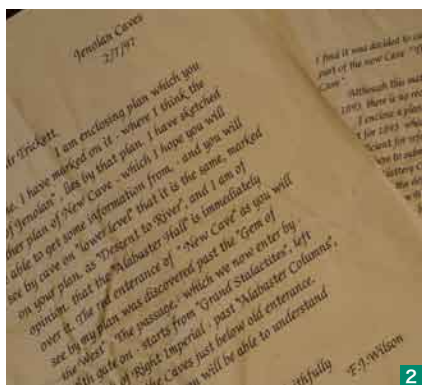 Jenolan Caves
2/7/97
Mr Trickett,
I am enclosing plan which you
me. I have marked on it - where I think the
of Jenolan", lies by that plan. I have sketched
ther plan of New Cave - which I hope you will
able to get some information from, - and you will
see by cave on "lower level" that it is the same, marked
on your plan, as "Descent to River", and I am of
opinion, that the "Alabaster Hall" is immediately
over it. The red enterance of "New Cave" as you will
see by my plan was discovered past the "Gem of
the West". The passage, - which we now enter by -
th gate on - starts from "Grand Stalactites", left
of "Right Imperial", past "Alabaster Columns",
the Caves just below old enterance.
you will be able to understand
thfully
F.J. Wilson
I find it was decided to
part of the new Cave
Cave".
Although this
1893, there is no
I enclose a plan
t for 1893
2